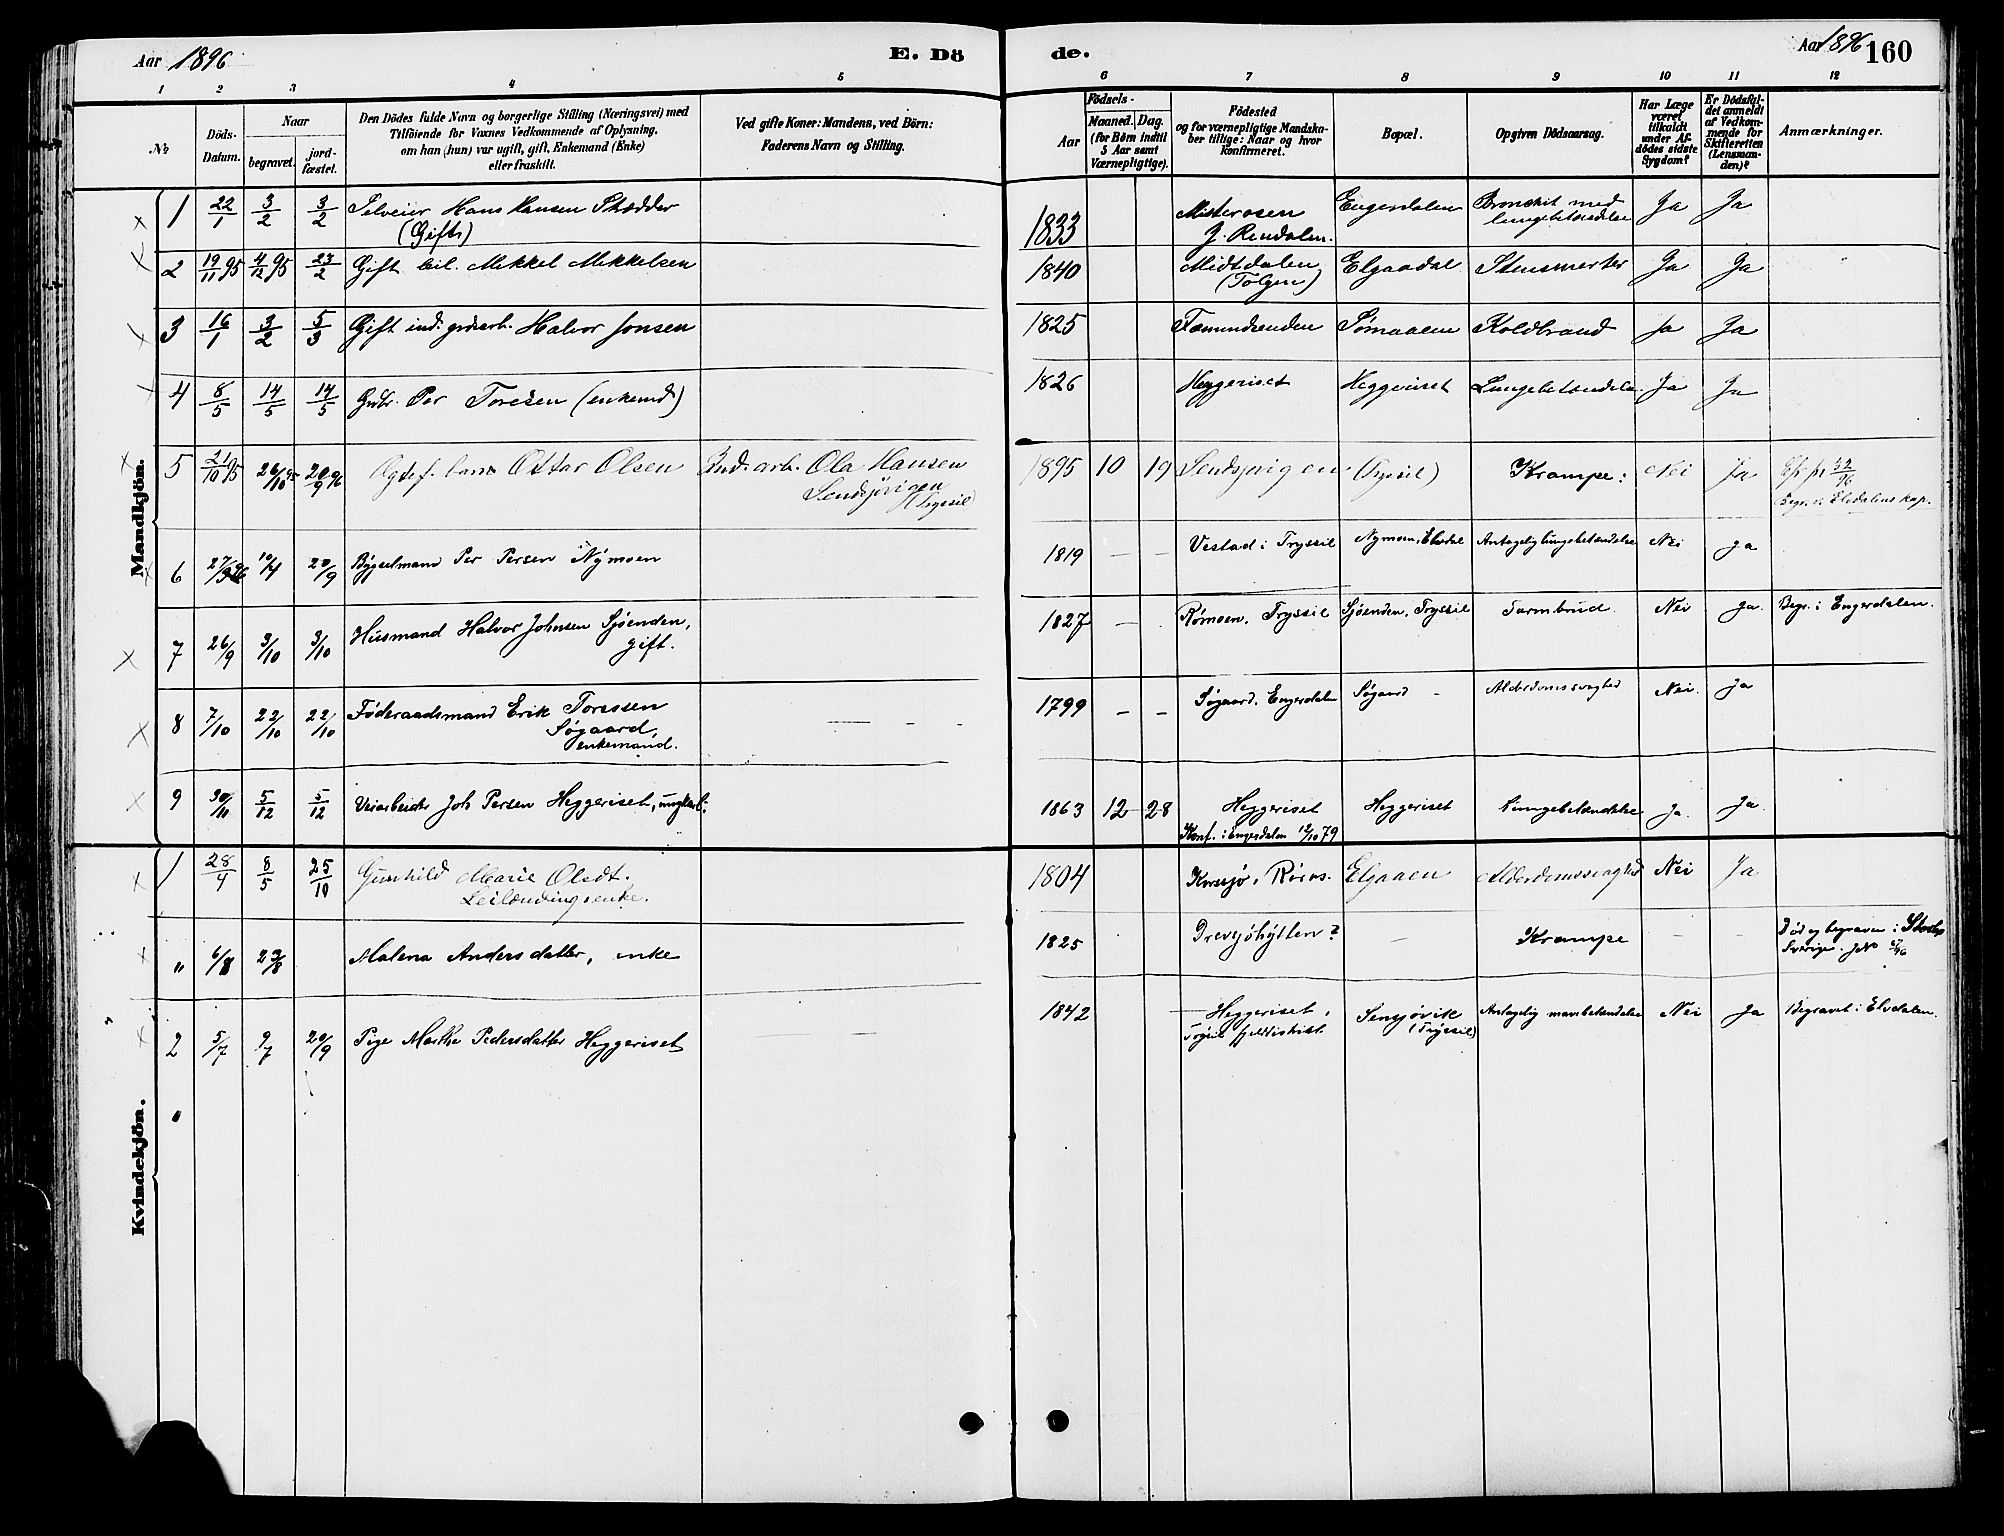 Aar 1896
E. Dö
de.
Aar 1896
160
1 2 3 4 5 6 7 8 9 10 11 12
№
Döds-
Datum.
Naar
begravet.
jord-
fæstet.
Den Dödes fulde Navn og borgerlige Stilling (Næringsvei) med
Tilföiende for Voxnes Vedkommende af Oplysning,
om han (hun) var ugift, gift, Enkemand (Enke)
eller fraskilt.
Ved gifte Koner: Mandens, ved Börn:
Faderens Navn og Stilling.
Födsels-
Aar
Maaned. Dag.
(for Börn indtil
5 Aar samt
Værnepligtige).
Födested
og for værnepligtige Mandska-
ber tillige: Naar og hvor
konfirmeret.
Bopæl.
Opgiven Dödsaarsag.
Har Læge
været
tilkaldt
under Af-
dödes sidste
Sygdom?
Er Dödsfal-
det anmeldt
af Vedkom-
mende for
Skifteretten
(Lensman-
den)?
Anmærkninger.
Mandkjön.
1 22/1 3/2 3/2 Selveier Hans Hansen
(Gift) 1833 Misterosen
Y. Rendalen. Engerdalen Bronchit med
lungebetændelse Ja Ja
2 19/11 95 4/12 95 23/2 Gift Mikkel Mikkelsen 1840 Midtdalen
(Tolgen) Elgaadal Ja Ja
3 16/1 3/2 5/3 Gift ind. grdarb. Halvor Jonsen 1825 Fæmundsenden Sømaaen Koldbrand Ja Ja
4 8/5 14/5 14/5 Grdbr. Per Toresen (enkemd) 1826 Heggeriset Heggeriset Lungebetændelse Ja Ja
5 21/10 95 26/10 95 20/9 96 Ægtef. barn Ottar Olsen Ind. arb. Ola Hansen
Sendsjøvigen
(Trysil) 1895 10 19 Sendsjøvigen (Trysil) Krampe: Nei Ja
Begr. v. Elvdalens kap.
6 27/3 96 10/4 20/9 Bygselmand Per Persen Nymoen 1819 — — Vestad i Tryssil Nymoen, Elvdal Antagelig lungebetændelse Nei Ja
7 26/9 3/10 3/10 Husmand Halvor Johnsen Sjøenden,
gift. 1827 — Rømoen, Tryssil Sjøenden, Tryssil Tarmbrud. Nei Ja. Begr. i Engerdalen.
8 7/10 22/10 22/10 Føderaadsmand Erik Toressen
Søgaard,
enkemand. 1799 — — Søgaard, Engerdalen Søgaard Alderdomssvaghed Nei. Ja
9 30/11 5/12 5/12 Veiarbeider Joh Persen Heggeriset, ungkarl. 1863 12 28 Heggeriset
Konf. i Engerdalen 12/10 79 Heggeriset Lungebetændelse Ja. Ja.
Kvindekjön.
1 28/4 8/5 25/10 Gunhild Marie Olsdt.
Leilændingsenke. 1804 Korssjø, Røros. Elgaaen Alderdomssvaghed Nei Ja
" 6/8 Malena Andersdatter, enke 1825 Drevsjøhytten? — Krampe — — Død og begraven i
Sverige.
2 5/7 9/7 20/9 Pige Marthe Pedersdatter Heggeriset 1842 Heggeriset, Sensjøvik
(Tryssil) Antagelig mavebetændelse Nei Ja Begravet i Elvdalen.
"